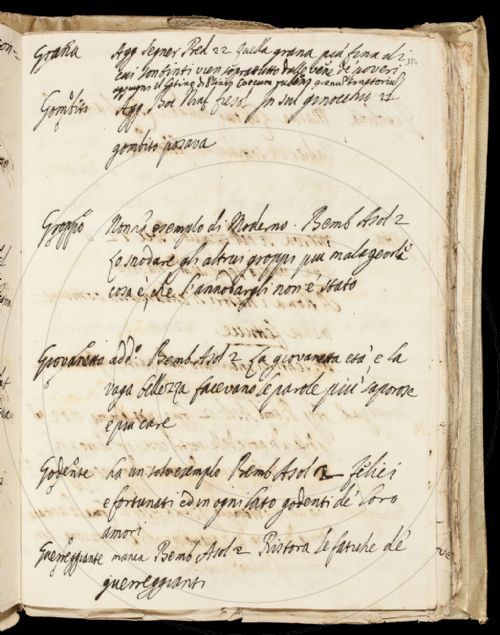 Grana Agg. Segner Pred 22 Quella grana più fina di
cui son tinti vien sopratutto dalle vene de poveri
aggiugni il latino di Plinio Coccum
Gombito Agg. Boc Ninf fiesol In sul ginocchio il
gombito posava
Groppo Non v'è esemplo di Moderno. Bemb Asol 2
Lo snodare gli altrui groppi più malagevole
cosa è, che l'annodargli non è stato
Giovanetta add. Bemb Asol 2 La giovanetta età, e la
vaga bellezza facevano le parole più saporose
e più care
Godente ha un solo esemplo Bemb Asol 2 felici
e fortunati ed in ogni lato godenti de loro
amori
Guerreggiante manca Bemb Asol 2 Ristora le fatiche de
guerreggianti